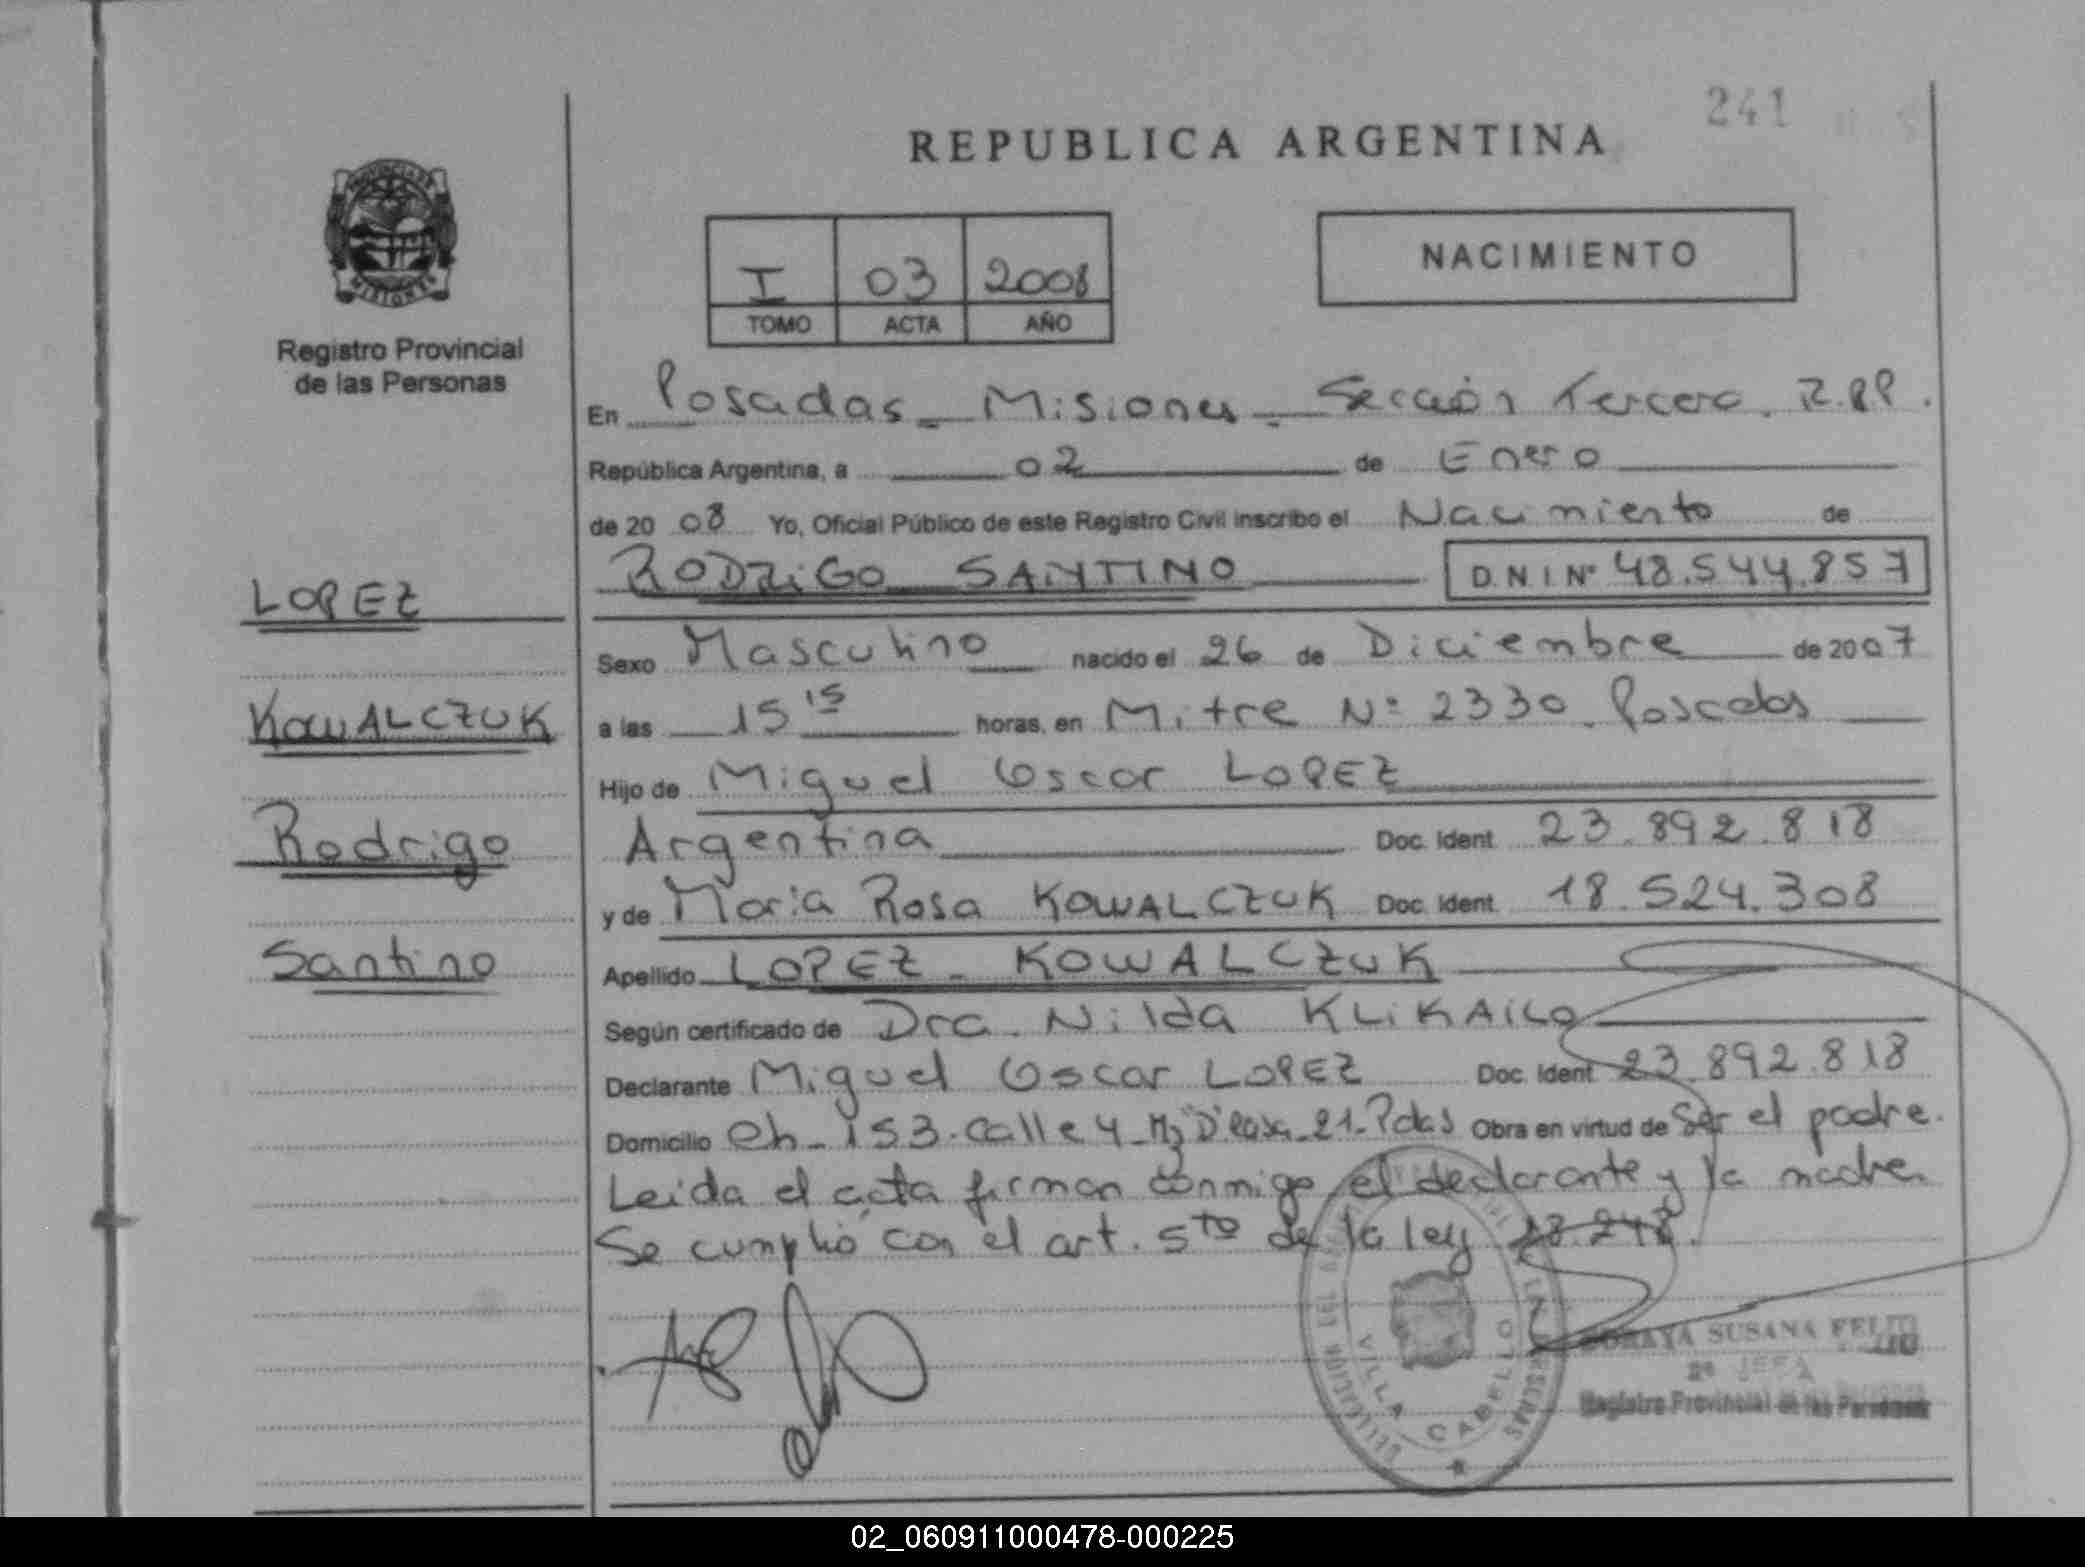 241
REPUBLICA ARGENTINA
NACIMIENTO
I 03 2008
TOMO ACTA AÑO
MISIONES
Registro Provincial
de las Personas
En Posadas - Misiones - Sección Tercera. R.PP.
República Argentina, a 02 de Enero
de 20 08 Yo, Oficial Público de este Registro Civil inscribo el Nacimiento de
RODRIGO SANTINO D.N.I Nº 48.544.857
LOPEZ
Sexo Masculino nacido el 26 de Diciembre de 2007
KOWALCZUK
a las 15 15 horas, en Mitre Nº 2330. Posadas
Hijo de Miguel Oscar LOPEZ
Rodrigo
Argentina Doc. Ident. 23.892.818
y de Maria Rosa KOWALCZUK Doc. Ident. 18.524.308
Santino
Apellido LOPEZ - KOWALCZUK
Según certificado de Dra. Nilda KLIKAILO
Declarante Miguel Oscar LOPEZ Doc. Ident 23.892.818
Domicilio Ch - 153. Calle 4 - Mz "D" Casa - 21 - Pdas Obra en virtud de Ser el padre.
Leida el acta firman conmigo el declarante y la madre.
Se cumplió con el art. 5to de la ley 18.248.
DELEGACION
VILLA CABELLO
SORAYA SUSANA FELIU
2ª JEFA
Registro Provincial de las Personas
02_060911000478-000225